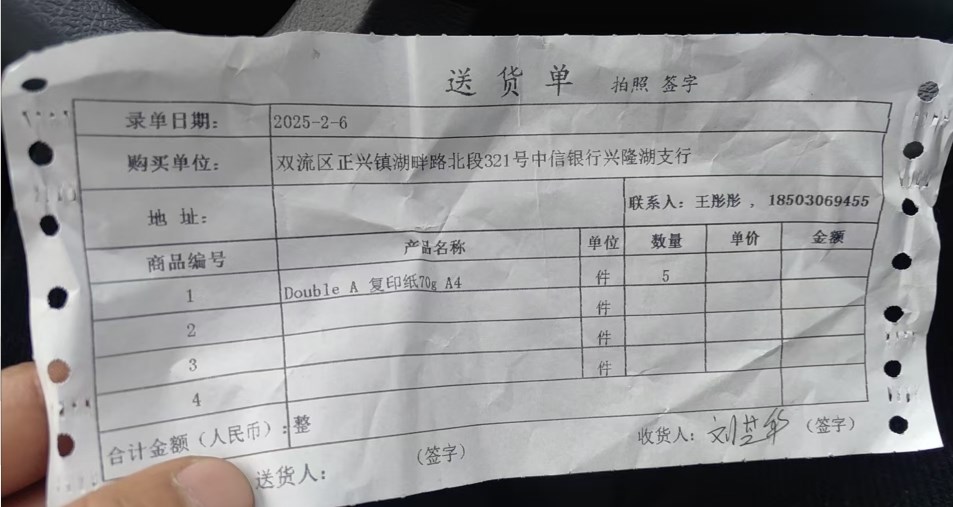 送货单 拍照 签字
录单日期: 2025-2-6
购买单位: 双流区正兴镇湖畔路北段321号中信银行兴隆湖支行
地 址: 联系人: 王彤彤 , 18503069455
商品编号 产品名称 单位 数量 单价 金额
1 Double A 复印纸70g A4 件 5
2 件
3 件
4 件
合计金额(人民币): 整
送货人: (签字) 收货人: 刘 (签字)